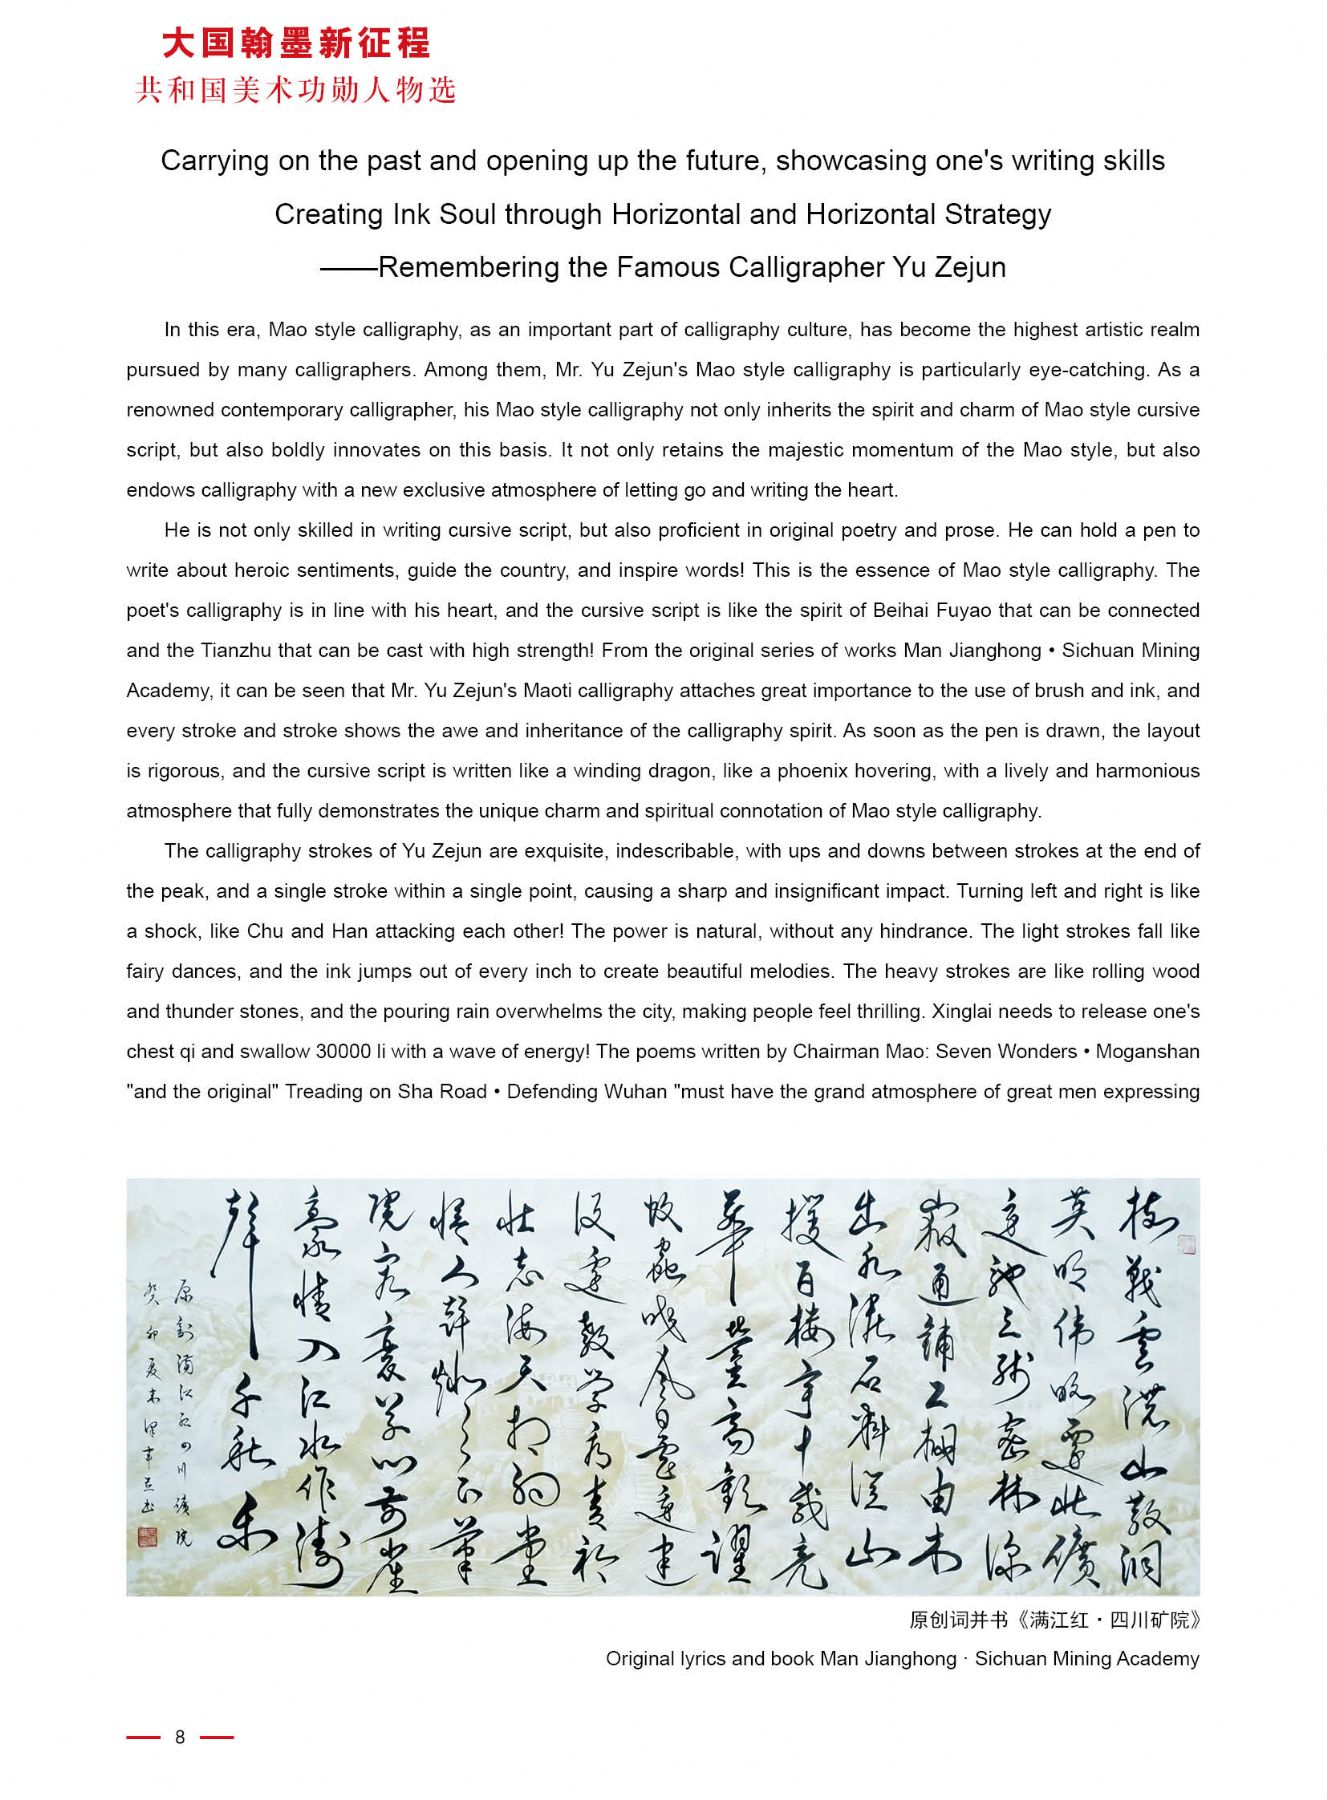 大国翰墨新征程
共和国美术功勋人物选
Carrying on the past and opening up the future, showcasing one's writing skills
Creating Ink Soul through Horizontal and Horizontal Strategy
——Remembering the Famous Calligrapher Yu Zejun
In this era, Mao style calligraphy, as an important part of calligraphy culture, has become the highest artistic realm
pursued by many calligraphers. Among them, Mr. Yu Zejun's Mao style calligraphy is particularly eye-catching. As a
renowned contemporary calligrapher, his Mao style calligraphy not only inherits the spirit and charm of Mao style cursive
script, but also boldly innovates on this basis. It not only retains the majestic momentum of the Mao style, but also
endows calligraphy with a new exclusive atmosphere of letting go and writing the heart.
He is not only skilled in writing cursive script, but also proficient in original poetry and prose. He can hold a pen to
write about heroic sentiments, guide the country, and inspire words! This is the essence of Mao style calligraphy. The
poet's calligraphy is in line with his heart, and the cursive script is like the spirit of Beihai Fuyao that can be connected
and the Tianzhu that can be cast with high strength! From the original series of works Man Jianghong • Sichuan Mining
Academy, it can be seen that Mr. Yu Zejun's Maoti calligraphy attaches great importance to the use of brush and ink, and
every stroke and stroke shows the awe and inheritance of the calligraphy spirit. As soon as the pen is drawn, the layout
is rigorous, and the cursive script is written like a winding dragon, like a phoenix hovering, with a lively and harmonious
atmosphere that fully demonstrates the unique charm and spiritual connotation of Mao style calligraphy.
The calligraphy strokes of Yu Zejun are exquisite, indescribable, with ups and downs between strokes at the end of
the peak, and a single stroke within a single point, causing a sharp and insignificant impact. Turning left and right is like
a shock, like Chu and Han attacking each other! The power is natural, without any hindrance. The light strokes fall like
fairy dances, and the ink jumps out of every inch to create beautiful melodies. The heavy strokes are like rolling wood
and thunder stones, and the pouring rain overwhelms the city, making people feel thrilling. Xinglai needs to release one's
chest qi and swallow 30000 li with a wave of energy! The poems written by Chairman Mao: Seven Wonders • Moganshan
"and the original" Treading on Sha Road • Defending Wuhan "must have the grand atmosphere of great men expressing
豪情入江水作濤
原创词并书《满江红・四川矿院》
Original lyrics and book Man Jianghong · Sichuan Mining Academy
8